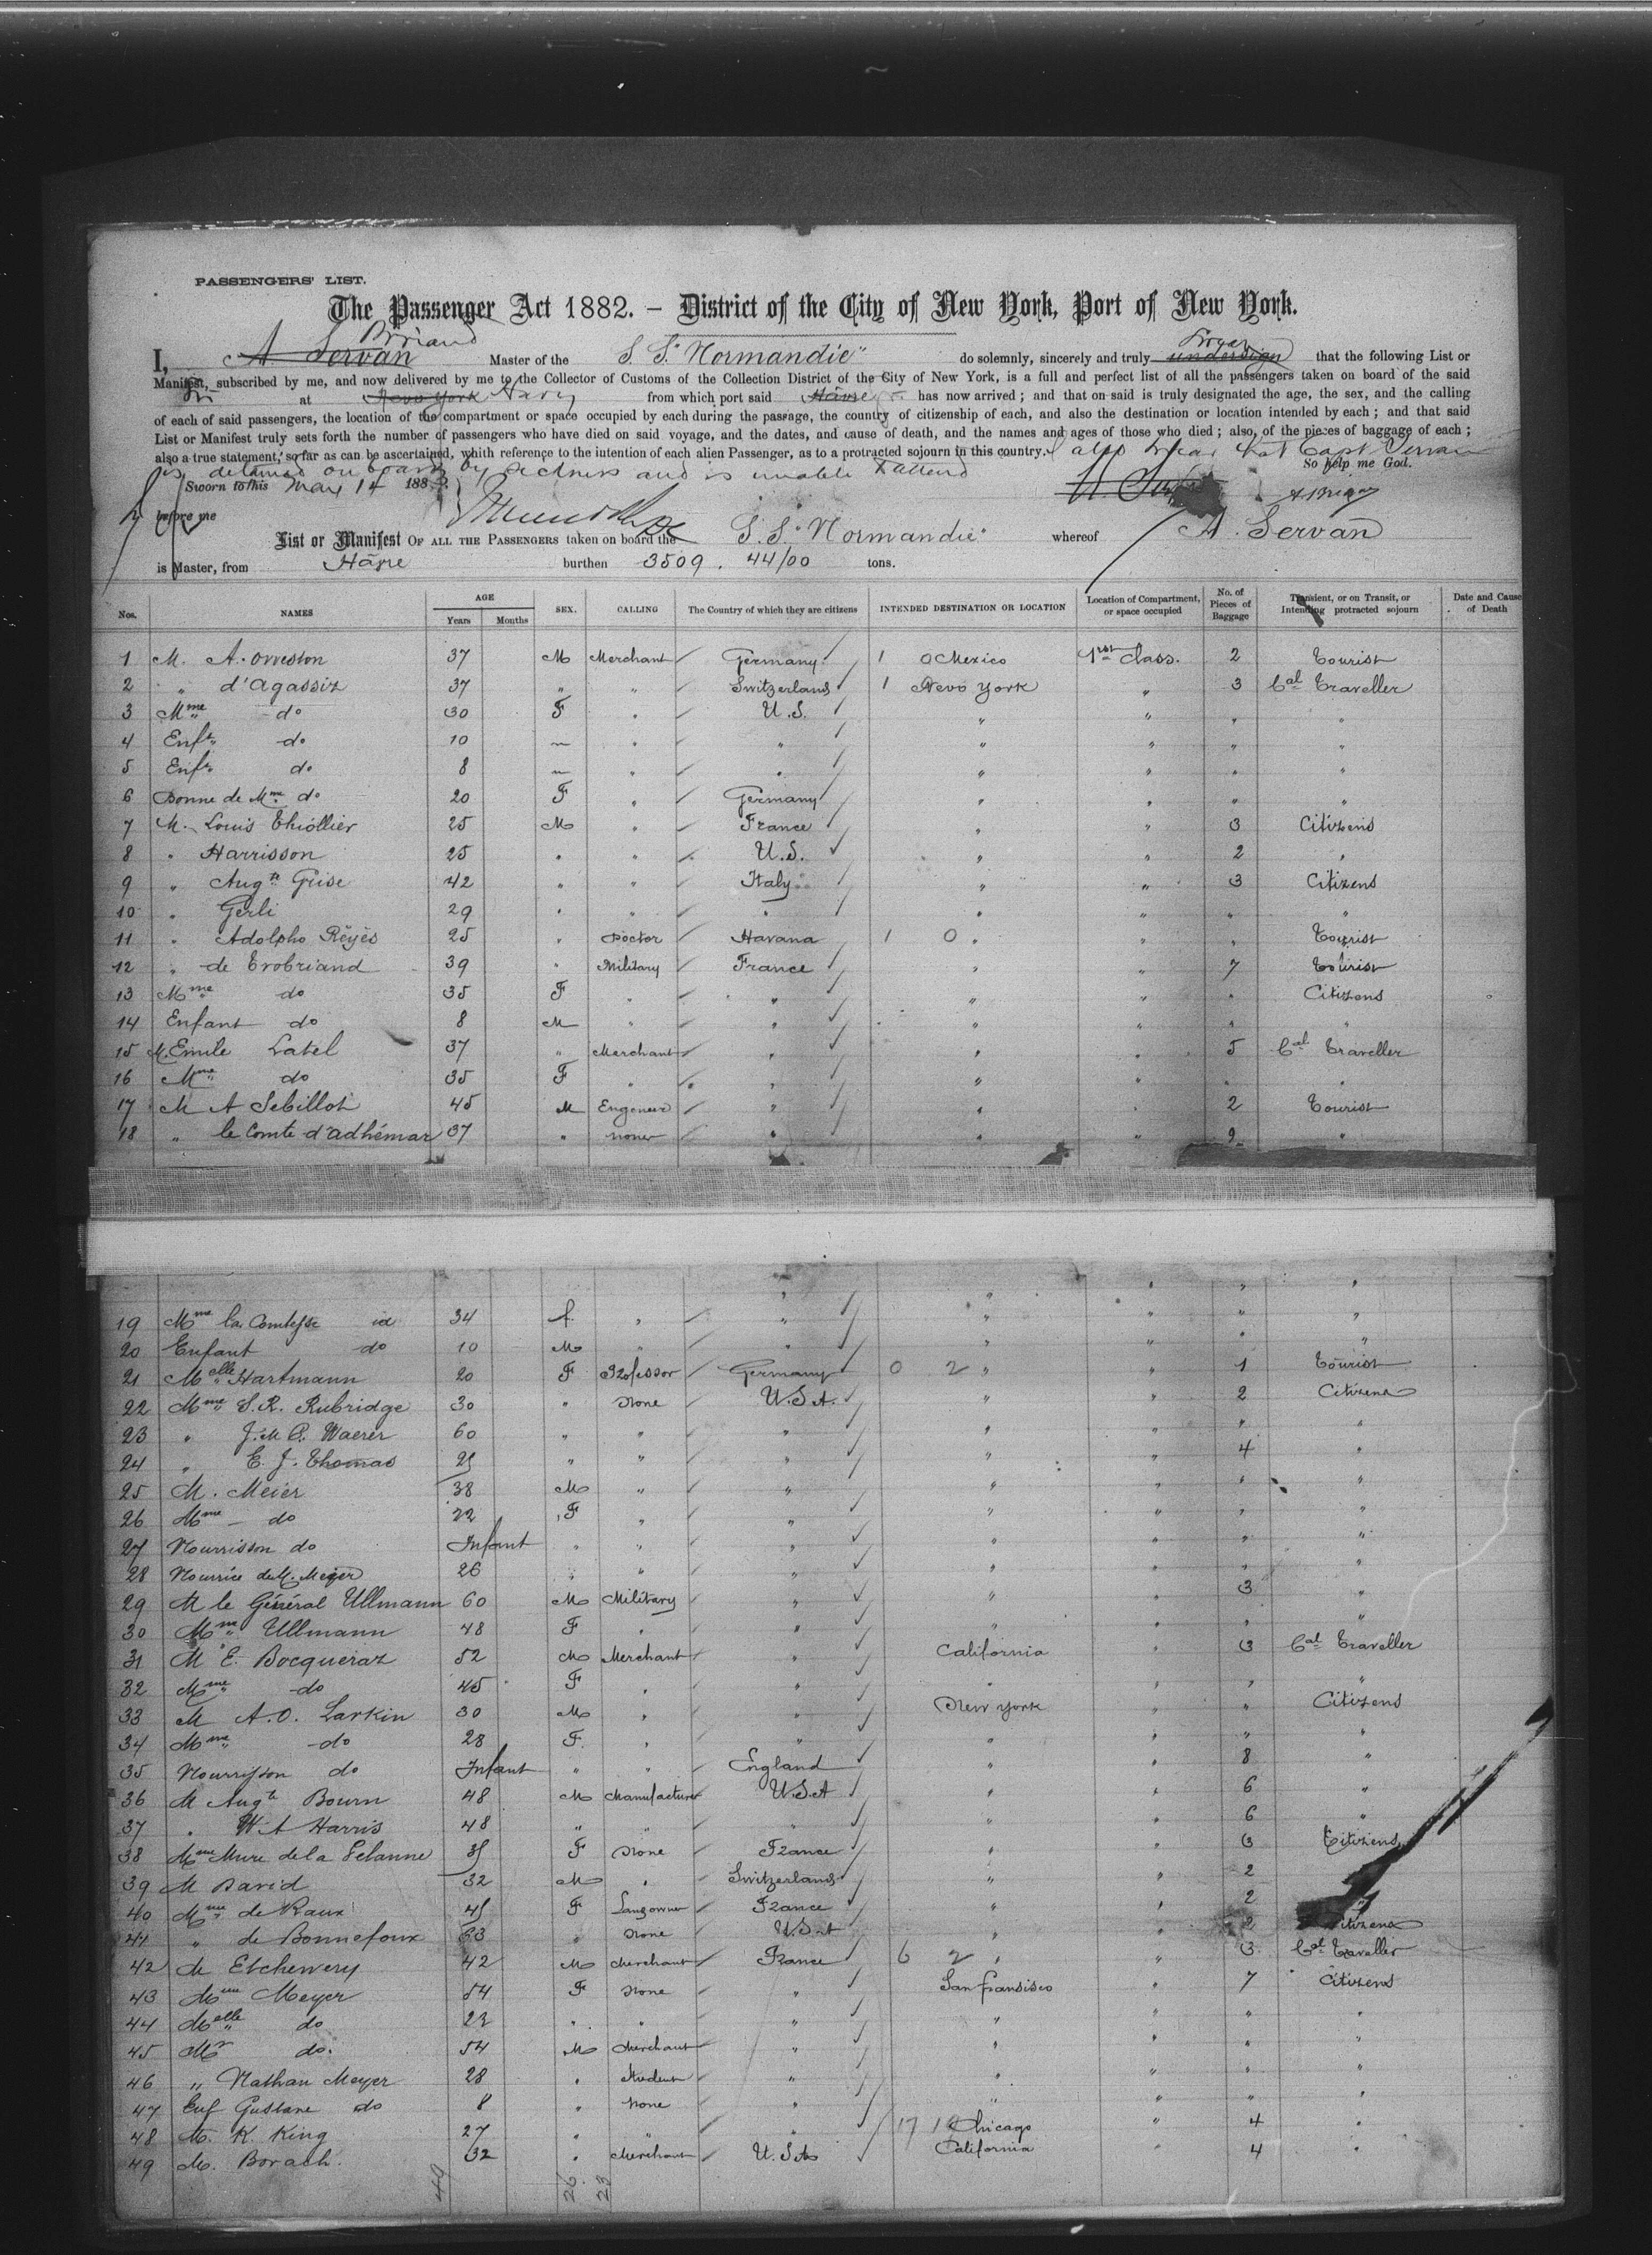 PASSENGERS' LIST.
The Passenger Act 1882. – District of the City of New York, Port of New York.
Briand
I, A. Servan Master of the S. S. "Normandie" do solemnly, sincerely and truly undersign swear that the following List or
Manifest, subscribed by me, and now delivered by me to the Collector of Customs of the Collection District of the City of New York, is a full and perfect list of all the passengers taken on board of the said
at New York Havre from which port said Hâvre has now arrived ; and that on said is truly designated the age, the sex, and the calling
of each of said passengers, the location of the compartment or space occupied by each during the passage, the country of citizenship of each, and also the destination or location intended by each ; and that said
List or Manifest truly sets forth the number of passengers who have died on said voyage, and the dates, and cause of death, and the names and ages of those who died ; also, of the pieces of baggage of each ;
also a true statement, so far as can be ascertained, whith reference to the intention of each alien Passenger, as to a protracted sojourn in this country. I also swear that Capt Servan
is detained on board by sickness and is unable to attend So help me God.
Sworn to this May 14 188
before me
List or Manifest OF ALL THE PASSENGERS taken on board the S. S. "Normandie" whereof A. Servan
is Master, from Hâvre burthen 3509. 44/00 tons.
Nos. NAMES AGE Years Months SEX. CALLING The Country of which they are citizens INTENDED DESTINATION OR LOCATION Location of Compartment, or space occupied No. of Pieces of Baggage Transient, or on Transit, or Intending protracted sojourn Date and Cause of Death
1 M. A. Orveston 37 M Merchant Germany 1 0 Mexico 1st Class. 2 Tourist
2 " d'Agassiz 37 " " Switzerland 1 New York " 3 Cal Traveller
3 Mme do 30 F " U. S. " " " "
4 Enft do 10 " " " " " " "
5 Enft do 8 " " " " " " "
6 Bonne de Mme do 20 F " Germany " " " "
7 M. Louis Thiollier 25 M " France " " 3 Citizens
8 " Harrisson 25 " " U. S. " " 2 "
9 " Augte Grise 42 " " Italy " " 3 Citizens
10 " Gerli 29 " " " " " " "
11 " Adolpho Réyès 25 " Doctor Havana 1 0 " " " Tourist
12 " de Trobriand 39 " Military France " " 7 Tourist
13 Mme do 35 F " " " " " Citizens
14 Enfant do 8 M " " " " " "
15 M. Emile Latel 37 " Merchant " " " 5 Cal Traveller
16 Mme do 35 F " " " " " "
17 M A Sebillot 45 M Engeneer " " " 2 Tourist
18 " le Comte d'Adhémar 37 " none " " " 9 "
19 Mme la Comtesse id 34 f. " " " " " "
20 Enfant do 10 M " " " " " "
21 Melle Hartmann 20 F Professor Germany 0 2 " " 1 Tourist
22 Mme S. R. Rubridge 30 " None U. S. A. " " 2 Citizens
23 " J. M. P. Waerer 60 " " " " " " "
24 " E. J. Thomas 25 " " " " " 4 "
25 M. Meier 38 M " " " " " "
26 Mme do 22 F " " " " " "
27 Nourrisson do Infant " " " " " " "
28 Nourrice de M. Meyer 26 " " " " " " "
29 M le Général Ullmann 60 M Military " " " 3 "
30 Mme Ullmann 48 F " " " " " "
31 M E. Bocqueraz 52 M Merchant " California " 3 Cal Traveller
32 Mme do 45 F " " " " " "
33 M A. O. Larkin 30 M " " New York " " Citizens
34 Mme do 28 F. " " " " " "
35 Nourrisson do Infant " " England " " 8 "
36 M Augte Bourn 48 M Manufacturer U. S. A " " 6 "
37 " W A Harris 48 " " " " " 6 "
38 Mme Mure de la Pelanne 35 F None France " " 3 Citizens
39 M David 32 M " Switzerland " " 2
40 Mme de Raux 45 F Langowner France " " 2 "
41 " de Bonnefoux 63 " None U. S. A " " 2 Citizens
42 de Etchewery 42 M Merchant France 6 2 " " 3 Cal Traveller
43 Mme Meyer 54 F None " San fransisco " 7 Citizens
44 Melle do 22 " " " " " " "
45 Mr do. 54 M Merchant " " " " "
46 " Nathan Meyer 28 " Student " " " " "
47 Enf Gustave do 8 " None " " " " "
48 M. K. King 27 " " " 17 Chicago " 4 "
49 M. Borach. 32 " Merchant U. S. A California " 4 "
49 26 23